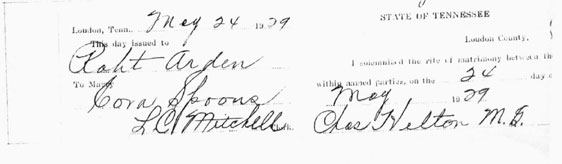 Loudon, Tenn. May 24 1929
This day issued to
Robt Arden
To Marry
Cora Spoons
L.C. Mitchell Clerk
STATE OF TENNESSEE
Loudon County,
I solemnized the rite of matrimony between the
within named parties, on the 24 day o
May 1929
Chas Helton M.G.